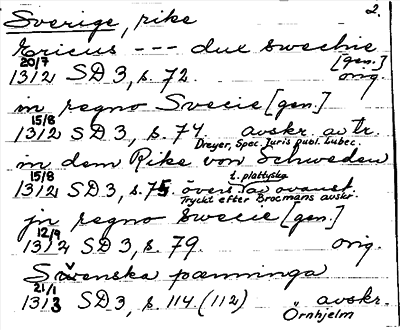 Sverige, rike 2.
Ericus --- dux swechie
[gen.]
20/7
1312 SD 3, s. 72. orig.
in regno Svecie [gen.]
15/8
1312 SD 3, s. 74. avskr. av tr.
Dreyer, Spec. Juris Publ. Lubec.
in dem Rike von Schweden
15/8 t. plattyska
1312 SD 3, s. 75. övers. av ovanst.
Tryckt efter Brocmans avskr.
jn regno Swecie [gen.]
12/9
1312 SD 3, s. 79. orig.
Swenska pænninga
21/1
1313 SD 3, s. 114. (112) " avskr.
Örnhjelm